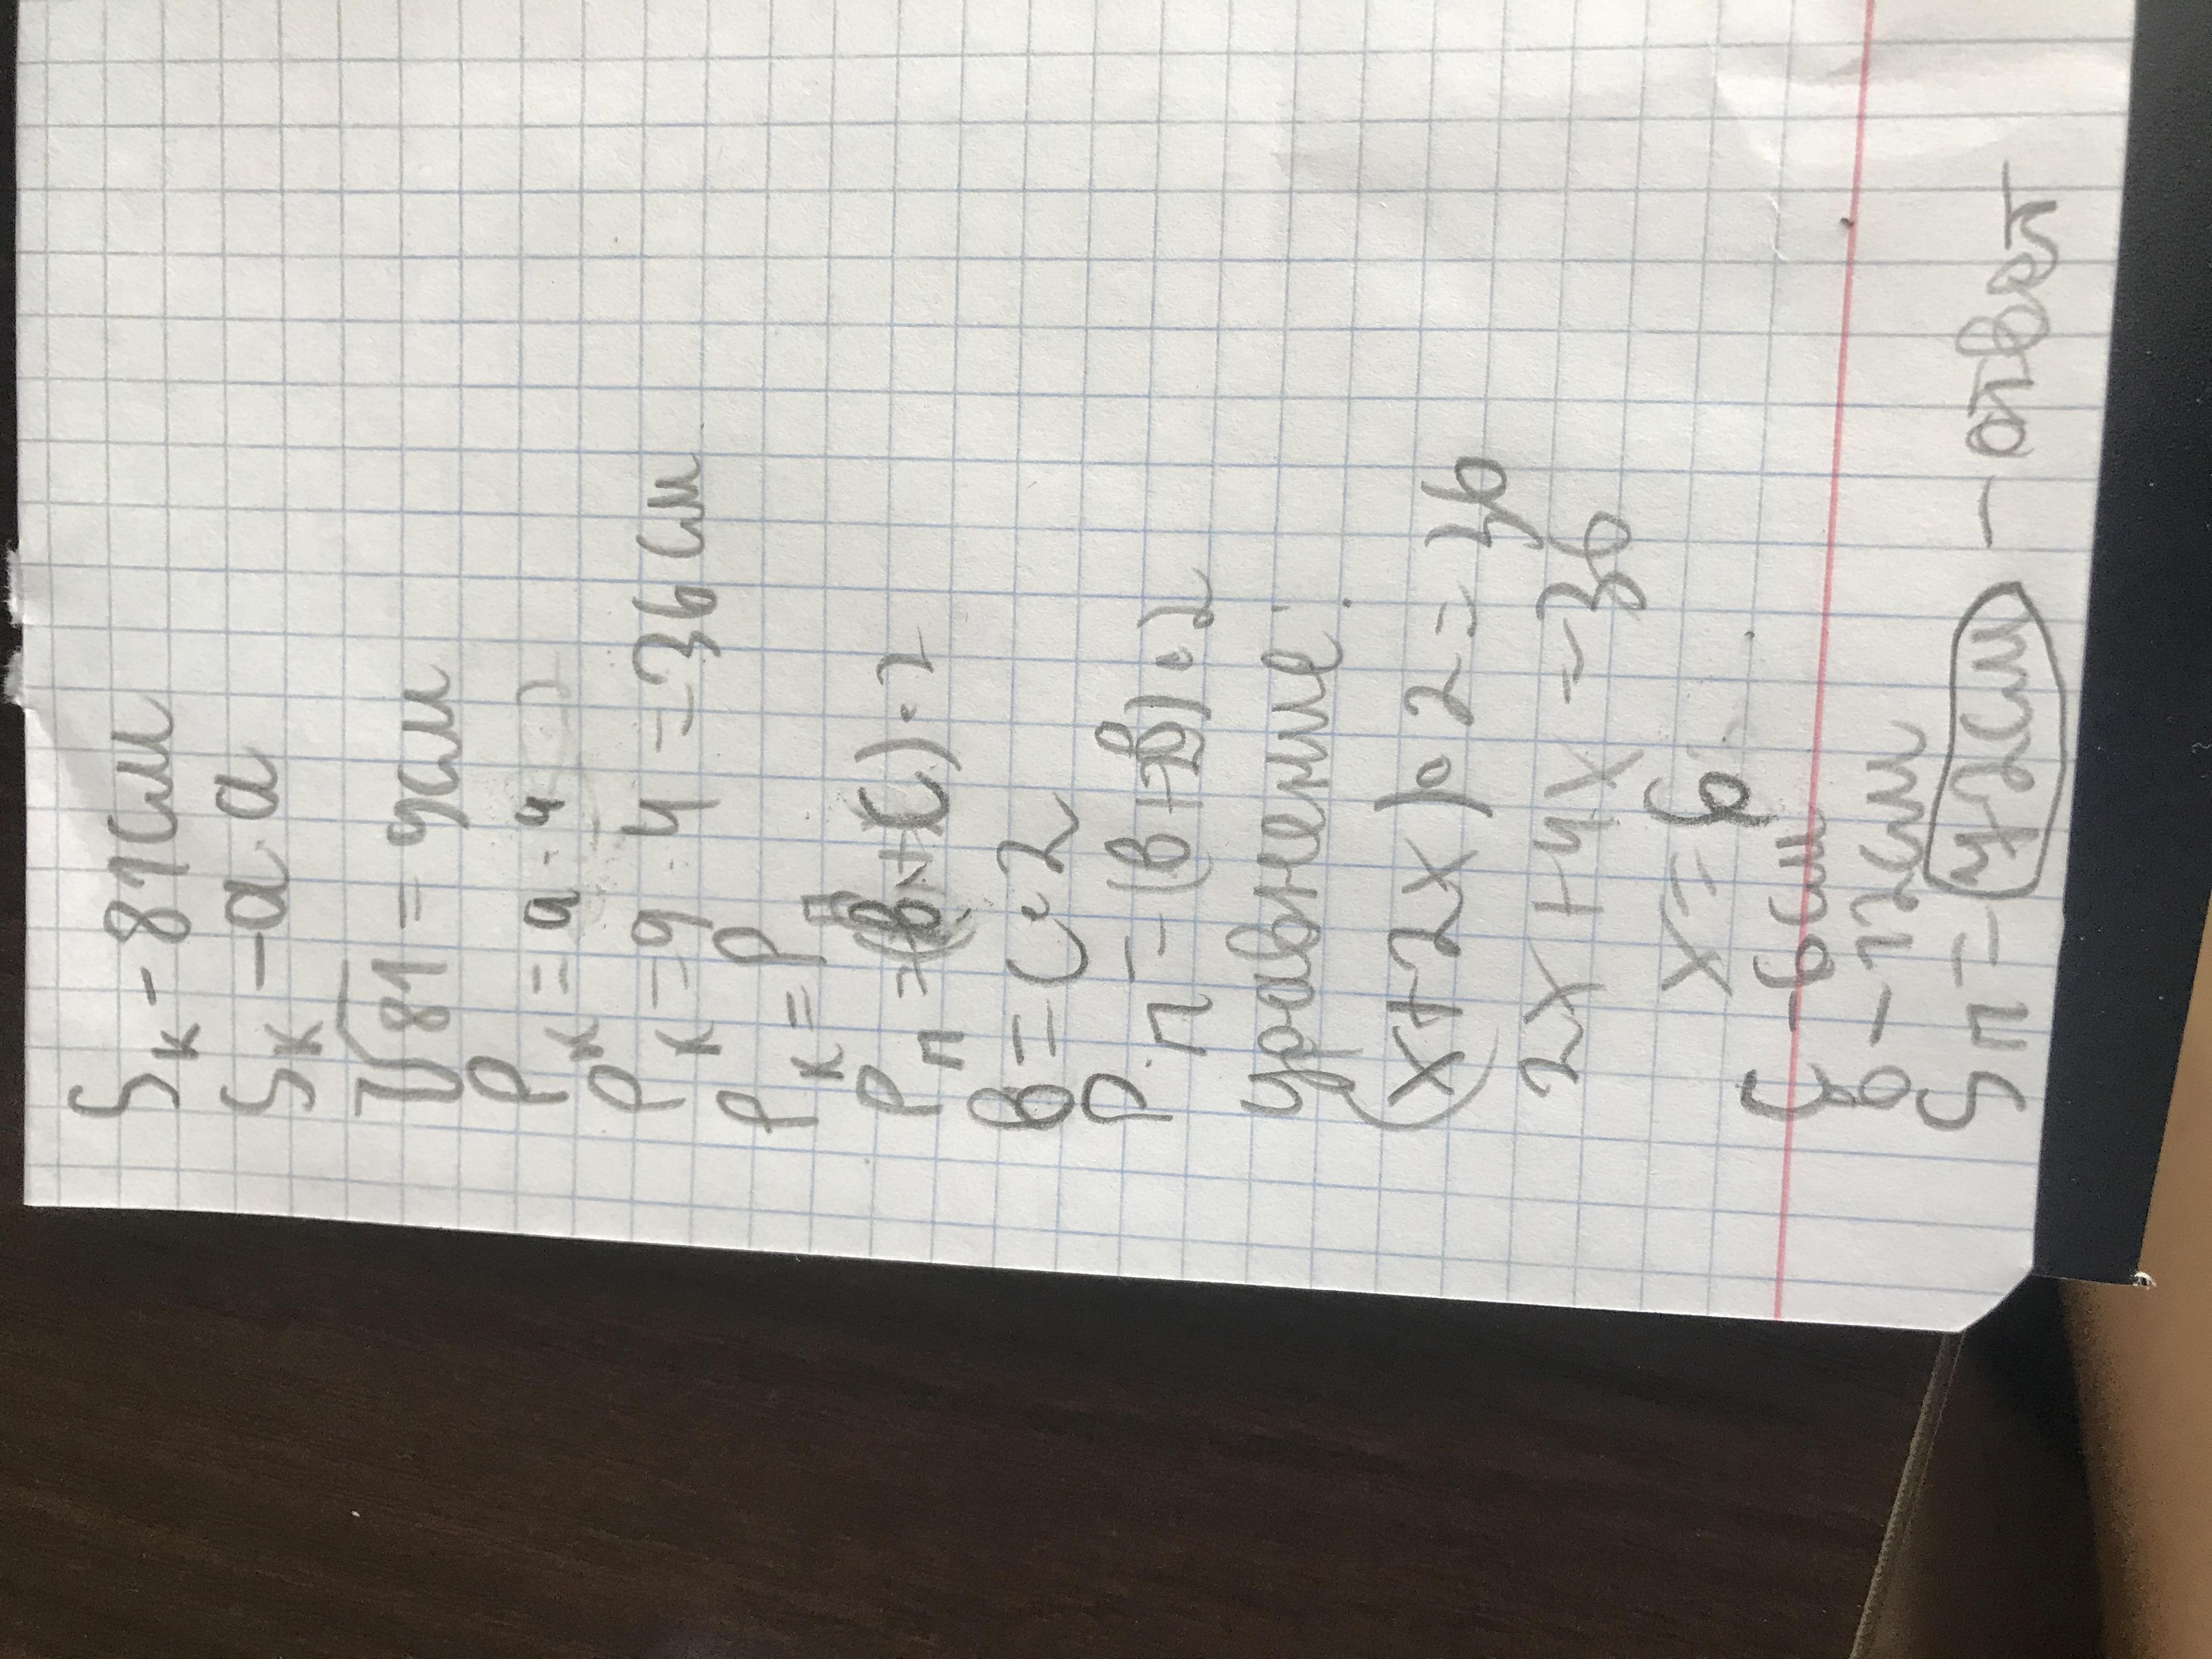 Sк - 81см
Sк - a·a
√81 = 9см
Pк = a·4
Pк = 9·4 = 36см
Pк = Pп
Pп = (в+c)·2
в = c·2
Pп = (в+2в)·2
уравнение:
(x+2x)·2 = 36
2x+4x = 36
x = 6
c - 6см
в - 12см
Sп = 72см - ответ